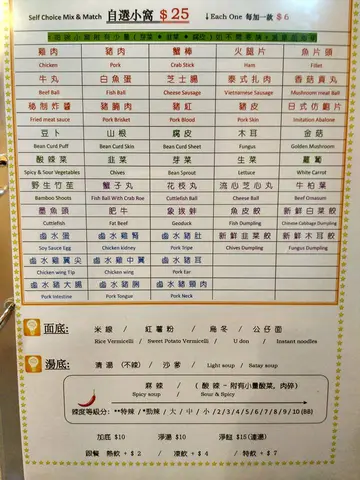 Self Choice Mix & Match 自選小窩 $ 25 ↓Each One 每加一款 $ 6
雞肉 豬肉 蟹棒 火腿片 魚片頭
Chicken Pork Crab Stick Ham Fillet
牛丸 白魚蛋 芝士腸 泰式扎肉 香菇貢丸
Beef Ball Fish Ball Cheese Sausage Vietnamese Sausage Mushroom meat Ball
秘制炸醬 豬腩肉 豬紅 豬皮 日式仿鮑片
Fried meat sauce Pork Brisket Pork Blood Pork Skin Imitation Abalone
豆卜 山根 腐皮 木耳 金菇
Bean Curd Puff Bean Curd Skin Bean Curd Sheet Fungus Golden Mushroom
酸辣菜 韭菜 芽菜 生菜 蘿蔔
Spicy & Sour Vegetables Chives Bean Sprout Lettuce White Carrot
野生竹笙 蟹子丸 花枝丸 流心芝心丸 牛柏葉
Bamboo Shoots Fish Ball With Crab Roe Cuttlefish Ball Cheese Ball Beef Omasum
墨魚頭 肥牛 象拔蚌 魚皮餃 新鮮白菜餃
Cuttlefish Fat Beef Geoduck Fish Dumpling Chinese Cabbage Dumpling
鹵水蛋 鹵水雞腎 鹵水豬肚 新鮮韭菜餃 新鮮木耳餃
Soy Sauce Egg Chicken kidney Pork Tripe Chives Dumpling Fungus Dumpling
鹵水雞翼尖 鹵水雞中翼 鹵水豬耳
Chicken wing Tip Chicken wing Pork Ear
鹵水豬大腸 鹵水豬脷 鹵水豬頸肉
Pork Intestine Pork Tongue Pork Neck
面底: 米線 / 紅薯粉 / 烏冬 / 公仔面
Rice Vermicelli / Sweet Potato Vermicelli / U don / Instant noodles
湯底: 清湯 (不辣) / 沙爹 / Light soup / Satay soup
麻辣 / (酸辣 - 附有小量酸菜。肉碎)
Spicy soup / Sour & Spicy
辣度等級分: **特辣 /*勁辣 / 大 / 中 / 小 /2/3/4/5/6/7/8/9/10 (BB)
加底 $10 淨湯 $10 淨餸 $15(連湯)
跟餐 熱飲 + $ 2 / 凍飲 + $ 4 / 特飲 + $ 7